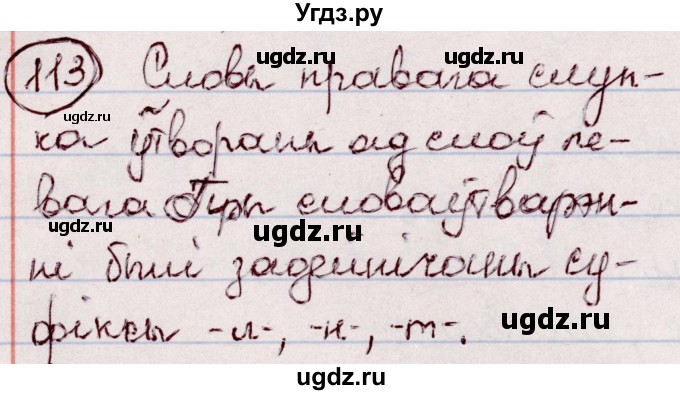 Угдз.ру
113 Словы правага слуп-
ка ўтвораны ад слоў ле-
вага. Пры словаўтварэн-
ні былі задзейнічаны су-
фіксы -л-, -н-, -т-.
ugdz.ru
ugdz.ru
ugdz.ru
ugdz.ru
ugdz.ru
ugdz.ru
ugdz.ru
ugdz.ru
ugdz.ru
ugdz.ru